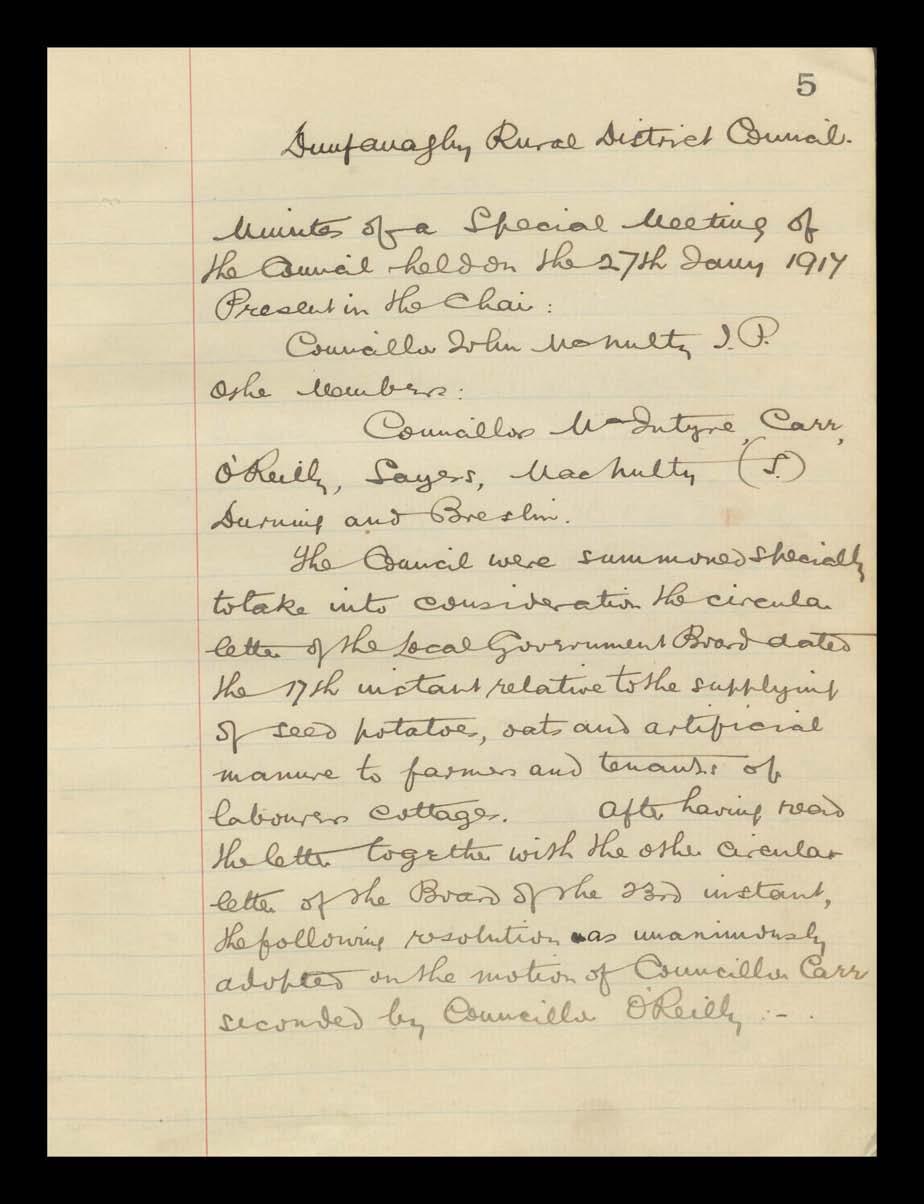 5
Dunfanaghy Rural District Council.
Minutes of a Special Meeting of
the Council held on the 27th Jany 1917
Present in the Chair :
Councillor John McNulty J.P.
Other Members :
Councillors McIntyre, Carr,
O'Reilly, Sayers, MacNulty (S.)
Durning and Breslin.
The Council were summoned specially
to take into consideration the circular
letter of the Local Government Board dated
the 17th instant relative to the supplying
of seed potatoes, oats and artificial
manure to farmers and tenants of
labourers cottages. After having read
the letter together with the other circular
letter of the Board of the 23rd instant,
the following resolution was unanimously
adopted on the motion of Councillor Carr
seconded by Councillor O'Reilly :-